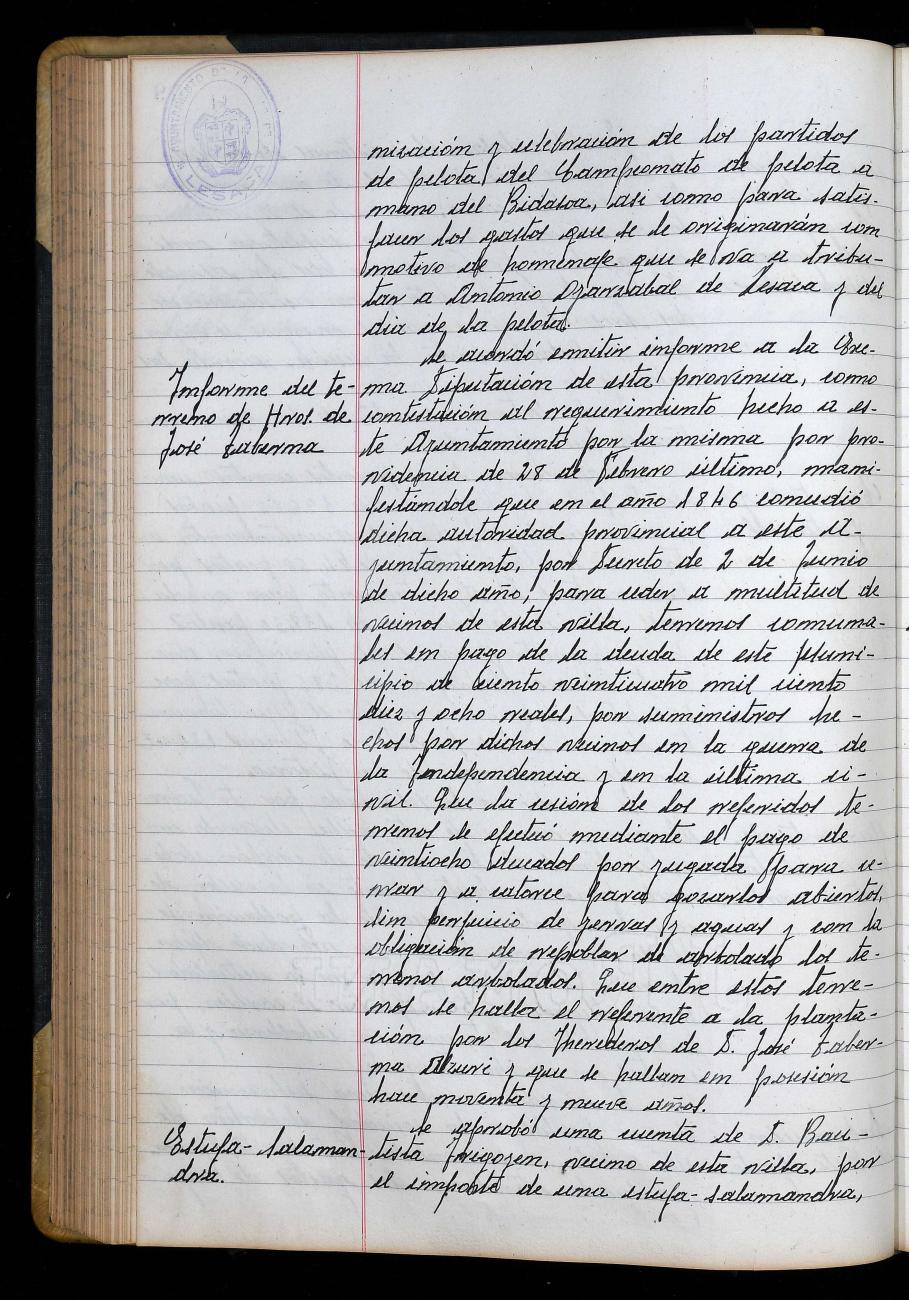 AYUNTAMIENTO DE LA
LESACA
nización y celebración de los partidos
de pelota del Campeonato de pelota a
mano del Bidasoa, asi como para satis-
facer los gastos que se le originarán con
motivo de homenaje que se va a tribu-
tar a Antonio Oyarzabal de Lesaca y del
dia de la pelota.
Se acordó emitir informe a la Exc-
Informe del te-
rreno de Hros. de
José Taberna
ma Diputación de esta provincia, como
contestación al requerimiento hecho a es-
te Ayuntamiento por la misma por pro-
videncia de 28 de Febrero último, mani-
festándole que en el año 1846 concedió
dicha autoridad provincial a este A-
yuntamiento, por Decreto de 2 de Junio
de dicho año, para ceder a multitud de
vecinos de esta villa, terrenos comuna-
les en pago de la deuda de este Muni-
cipio de ciento veinticuatro mil ciento
diez y ocho reales, por suministros he-
chos por dichos vecinos en la guerra de
la Independencia y en la última ci-
vil. Que la cesión de los referidos te-
rrenos se efectuó mediante el pago de
veintiocho ducados por yugada para ce-
rrar y a catorce para gozarlos abiertos,
sin perjuicio de yervas y aguas y con la
obligación de repoblar de arbolado los te-
rrenos arbolados. Que entre estos terre-
nos se halla el referente a la planta-
ción por los Herederos de D. José Taber-
na Alzuri y que se hallan en posesión
hace noventa y nueve años.
Se aprobó una cuenta de D. Bau-
Estufa-Salaman-
dra.
tista Irigoyen, vecino de esta villa, por
el importe de una estufa-salamandra,